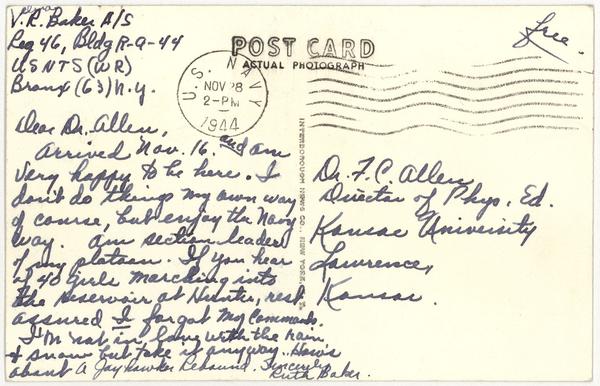 V.R. Baker A/S
Reg 46, Bldg R-9-44
USNTS (WR)
Bronx (63) N.Y.
POST CARD
ACTUAL PHOTOGRAPH
Free.
U.S. NAVY
NOV 28
2-PM
1944
Dear Dr. Allen,
Arrived Nov. 16. and am
very happy to be here. I
don't do things my own way
of course, but enjoy the Navy
way. Am section leader
of my platoon. If you hear
of 40 girls marching into
the Reservoir at Hunter, rest
assured I forgot my commands.
I'm not in love with the rain
& snow but take it anyway. How's
about A Jayhawker Rebound. Sincerely
Ruth Baker.
INTERBOROUGH NEWS CO., NEW YORK,
Dr. F.C. Allen
Director of Phys. Ed.
Kansas University
Lawrence,
Kansas.